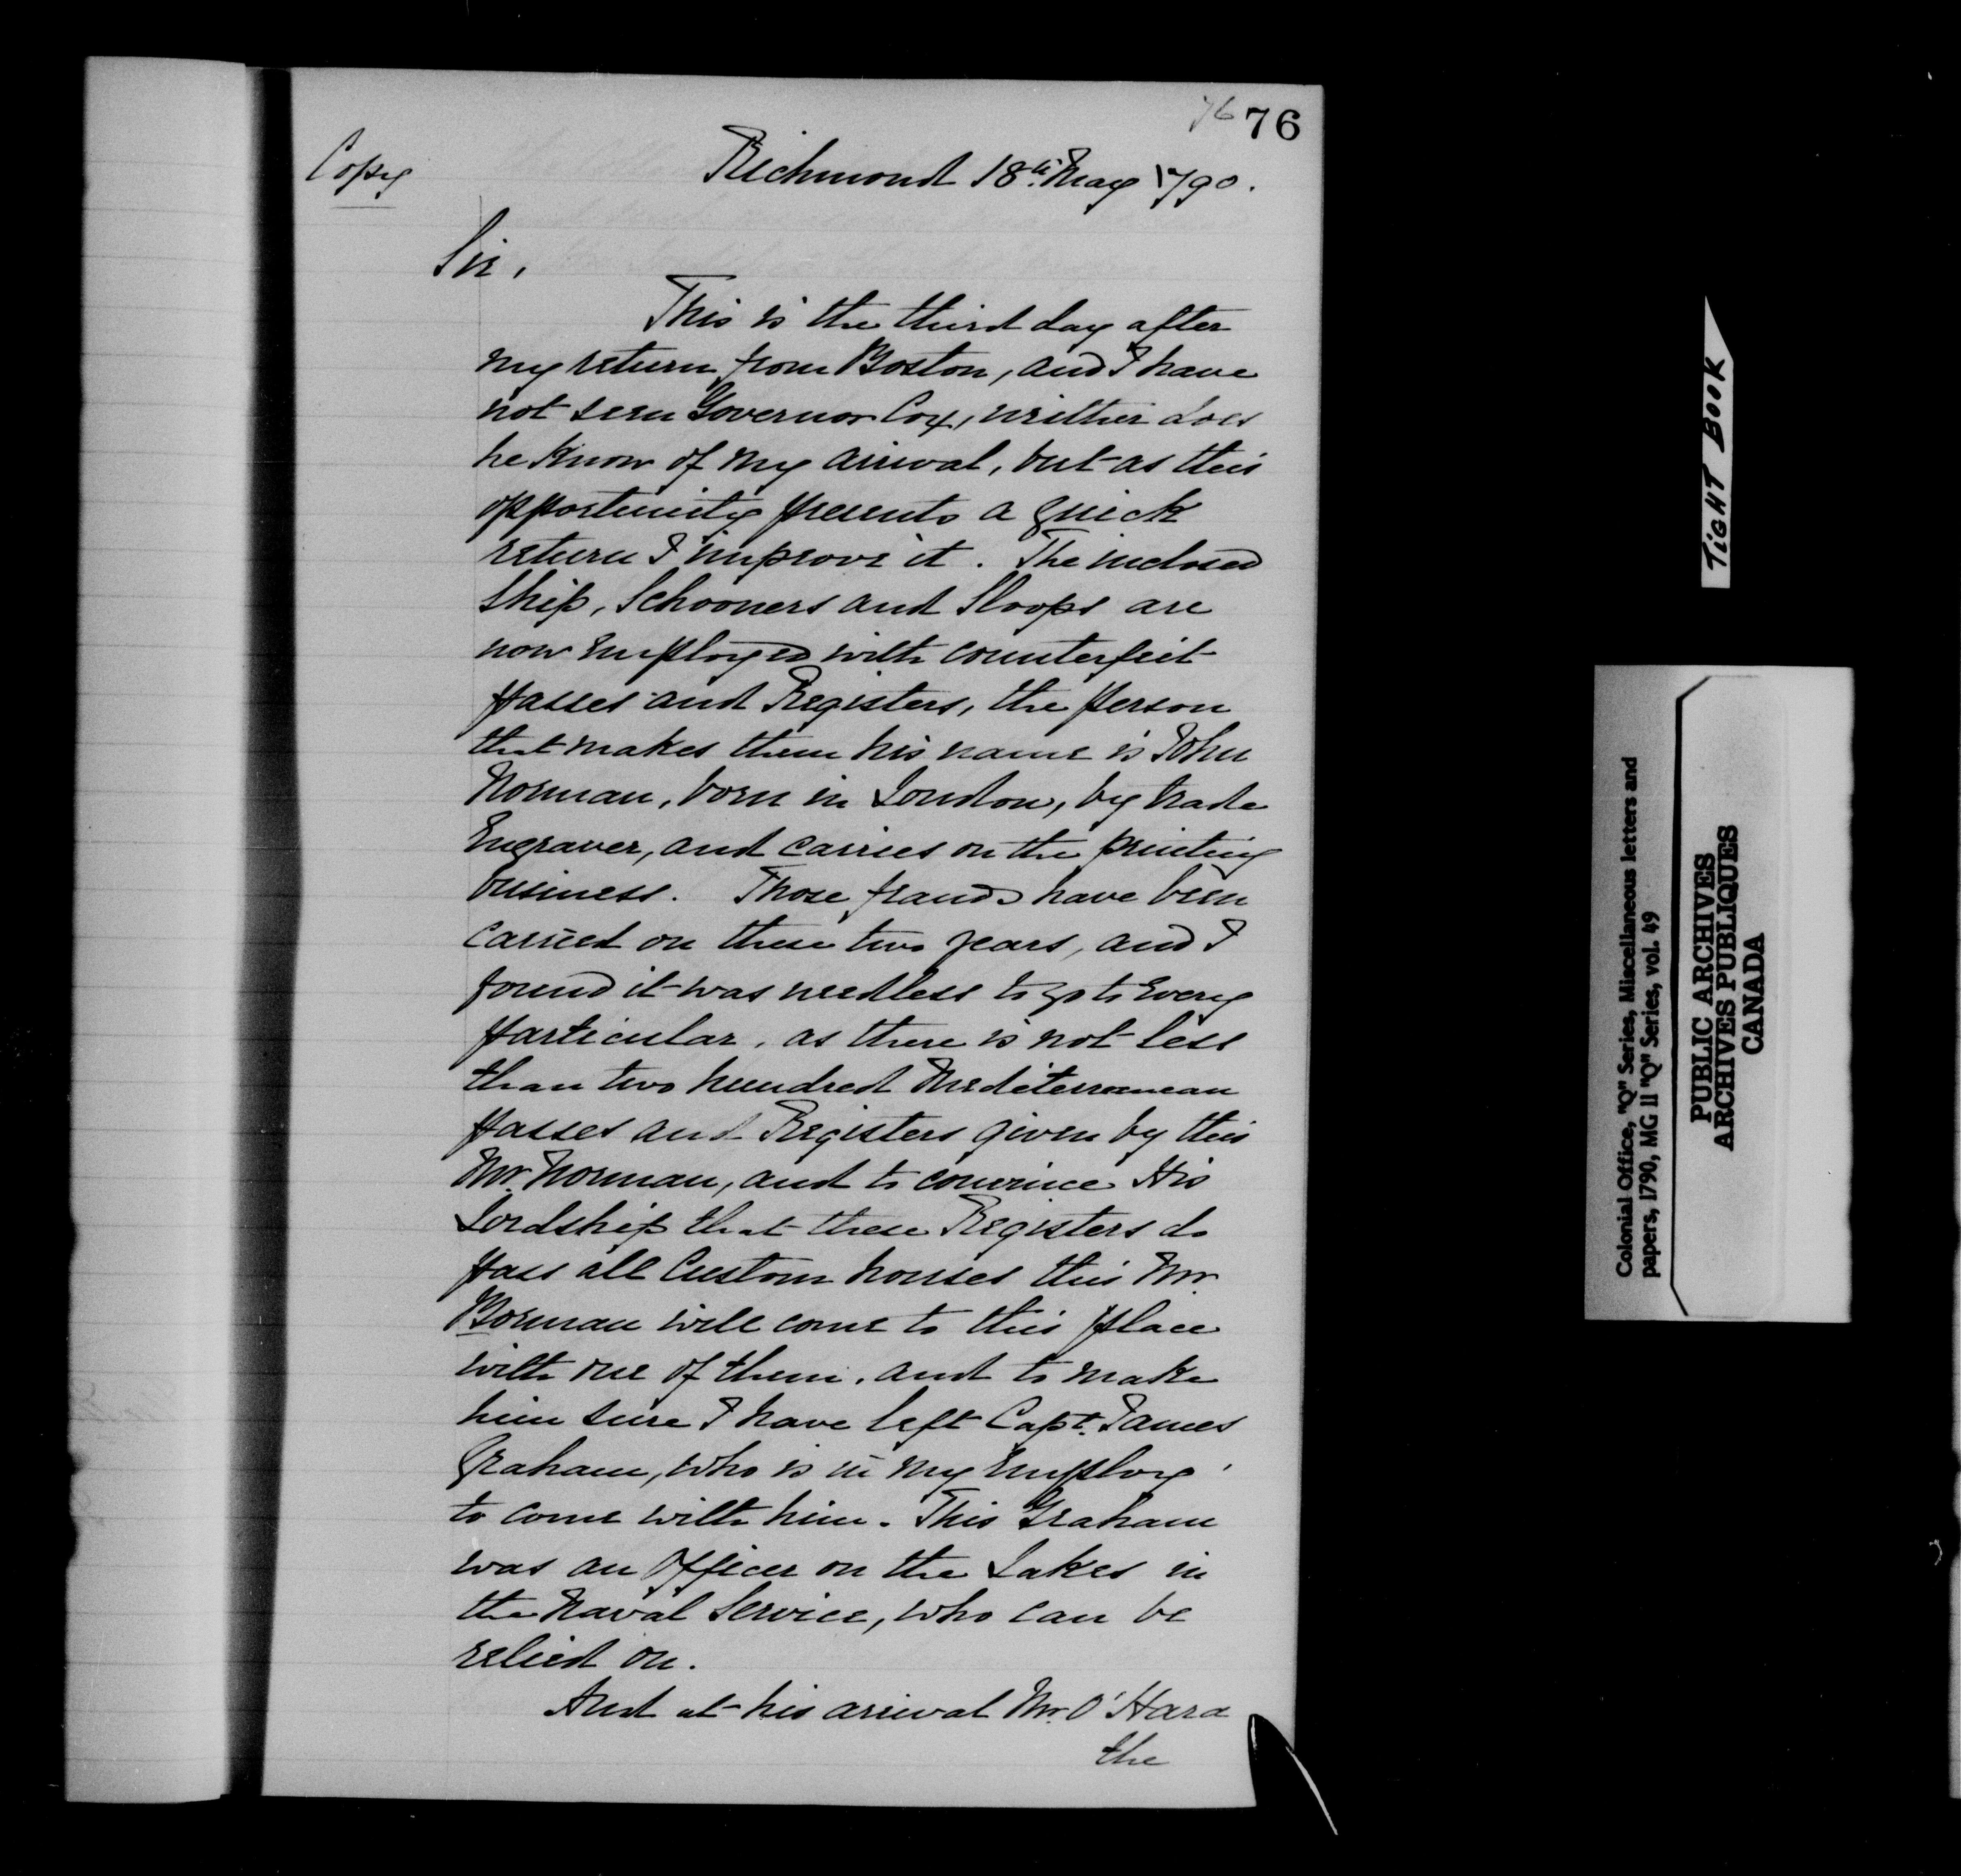 76 76
Copy
Richmond 18th May 1790.
Sir,
This is the third day after
my return from Boston, and I have
not seen Governor Cox, neither does
he know of my arrival, but as this
opportunity presents a quick
return I improve it. The inclosed
Ship, Schooners and Sloops are
now employed with counterfeit
passes and Registers, the person
that makes them his name is John
Norman, born in London, by trade
Engraver, and carries on the printing
business. Those frauds have been
carried on these two years, and I
found it was needless to go to every
particular, as there is not less
than two hundred Mediterranean
passes and Registers given by this
Mr. Norman, and to convince His
Lordship that these Registers do
pass all Custom houses this Mr.
Borman will come to this place
with one of them, and to make
him sure I have left Capt. James
Graham, who is in my employ
to come with him. This Graham
was an Officer on the Lakes in
the Naval Service, who can be
relied on.
And at his arrival Mr. O'Hara
the
TIGHT BOOK
Colonial Office, "Q" Series, Miscellaneous letters and
papers, 1790, MG 11 "Q" Series, vol. 49
PUBLIC ARCHIVES
ARCHIVES PUBLIQUES
CANADA